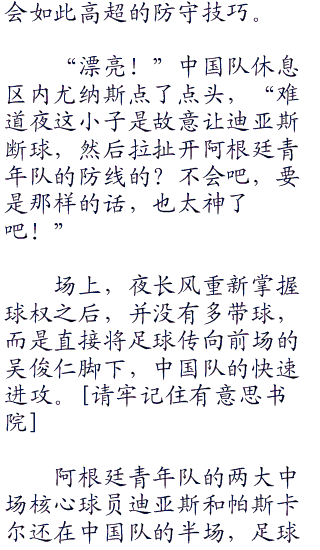 会如此高超的防守技巧。
“漂亮！”中国队休息
区内尤纳斯点了点头，“难
道夜这小子是故意让迪亚斯
断球，然后拉扯开阿根廷青
年队的防线的？不会吧，要
是那样的话，也太神了
吧！”
场上，夜长风重新掌握
球权之后，并没有多带球，
而是直接将足球传向前场的
吴俊仁脚下，中国队的快速
进攻。[请牢记住有意思书
院]
阿根廷青年队的两大中
场核心球员迪亚斯和帕斯卡
尔还在中国队的半场，足球